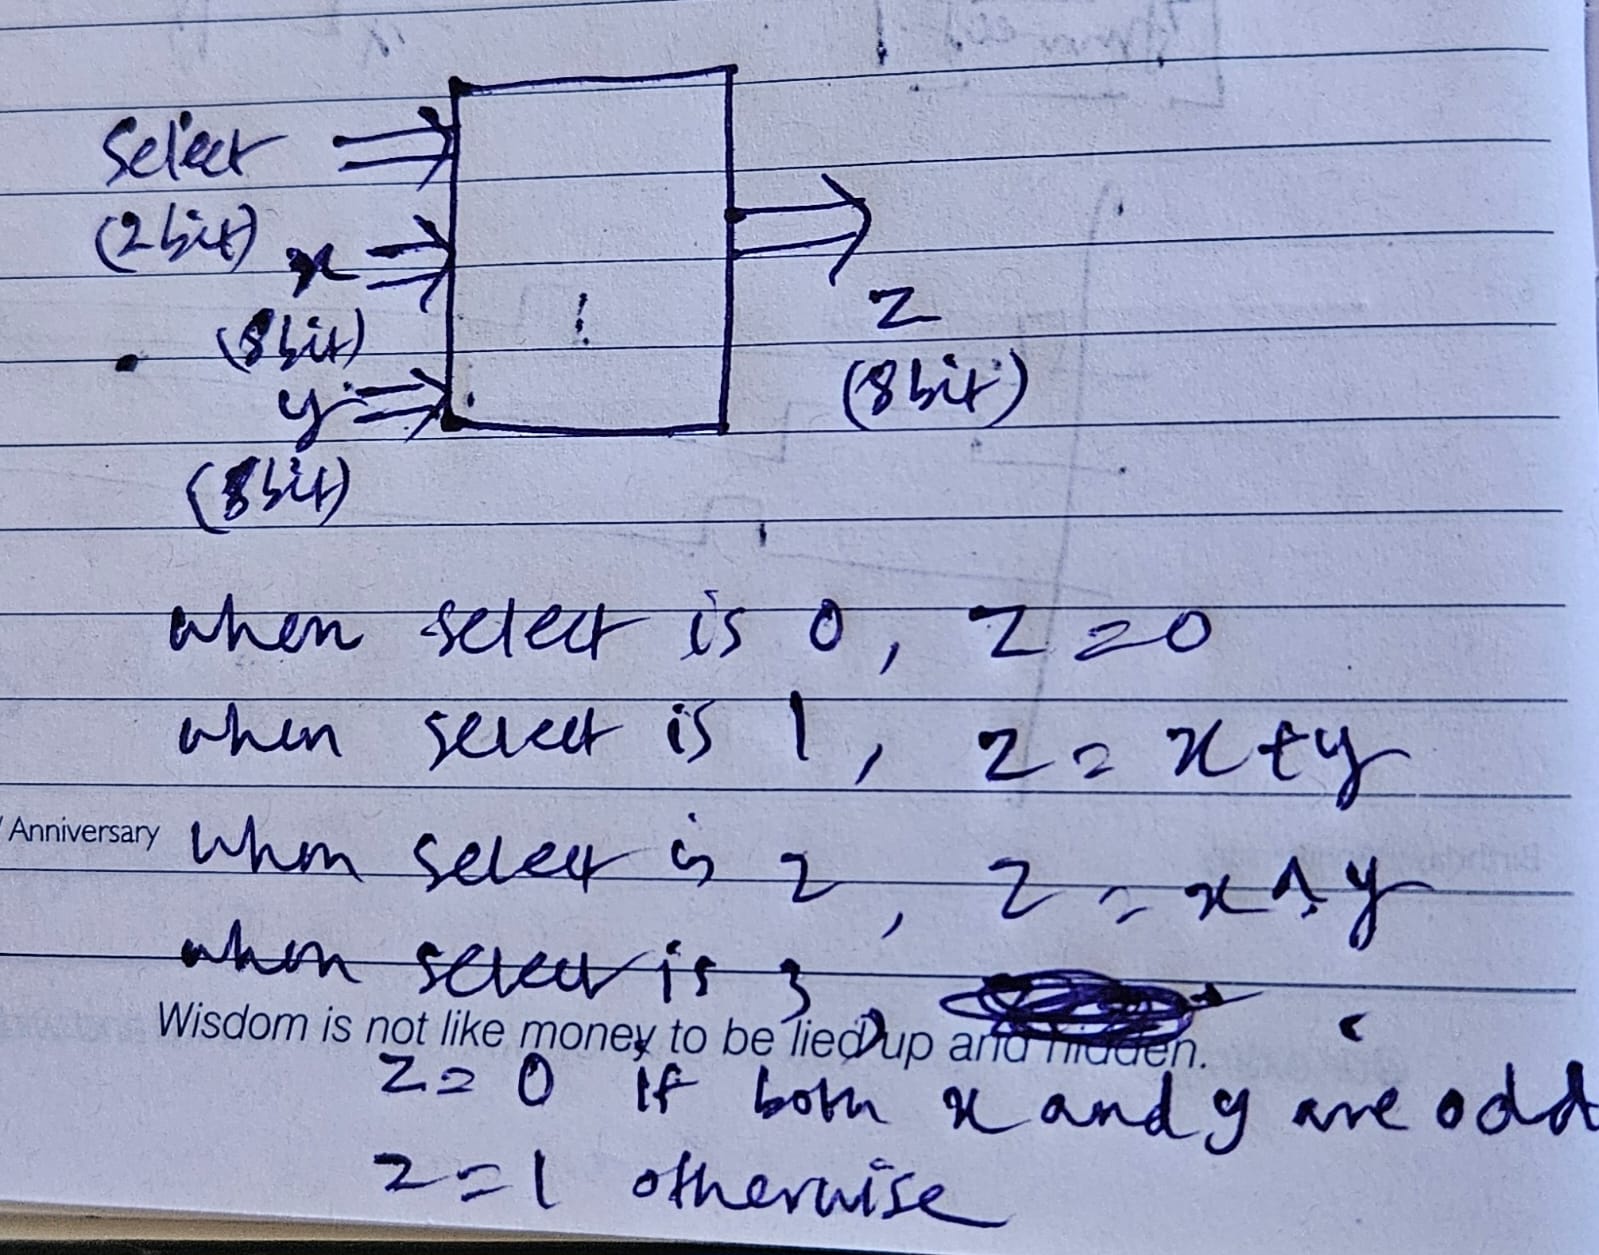 Select
(2bit)
x
(8bit)
y
(8bit)
z
(8bit)
when select is 0, z=0
when select is 1, z = x+y
Anniversary
when select is 2, z = x^y
when select is 3,
Wisdom is not like money to be tied up and hidden.
z=0 if both x and y are odd
z=1 otherwise